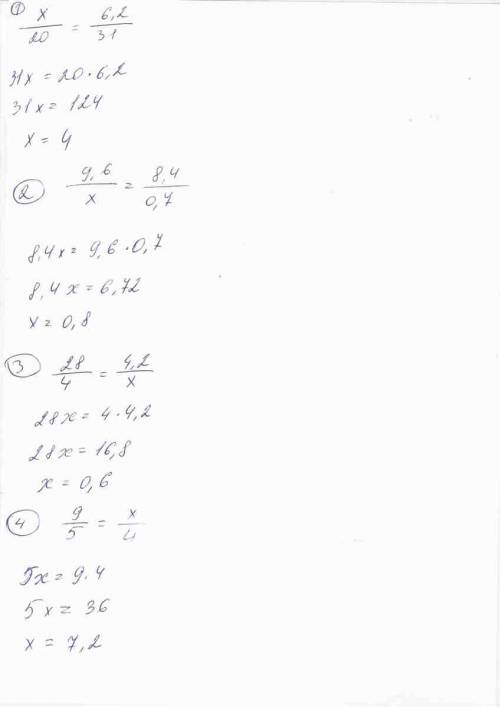 ① x/20 = 6,2/31
31x = 20·6,2
31x = 124
x = 4
② 9,6/x = 8,4/0,7
8,4x = 9,6·0,7
8,4x = 6,72
x = 0,8
③ 28/4 = 4,2/x
28x = 4·4,2
28x = 16,8
x = 0,6
④ 9/5 = x/4
5x = 9·4
5x = 36
x = 7,2